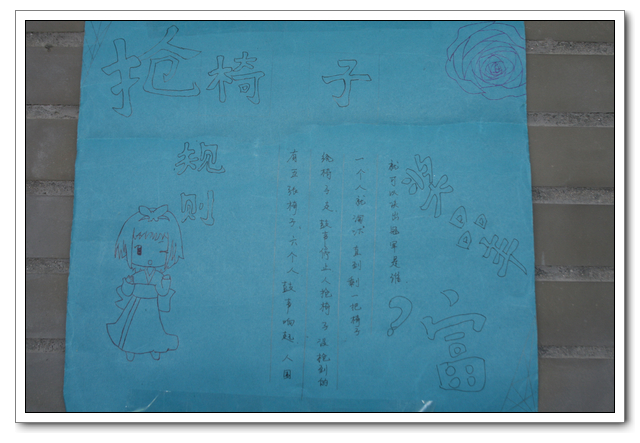 抢椅子
规则
有五张椅子、六个人鼓声响起,人围
绕椅子走鼓声停止人抢椅子没抢到的
一个人就淘汰直到剩一把椅子
就可以决出冠军是谁
?
奖品丰富